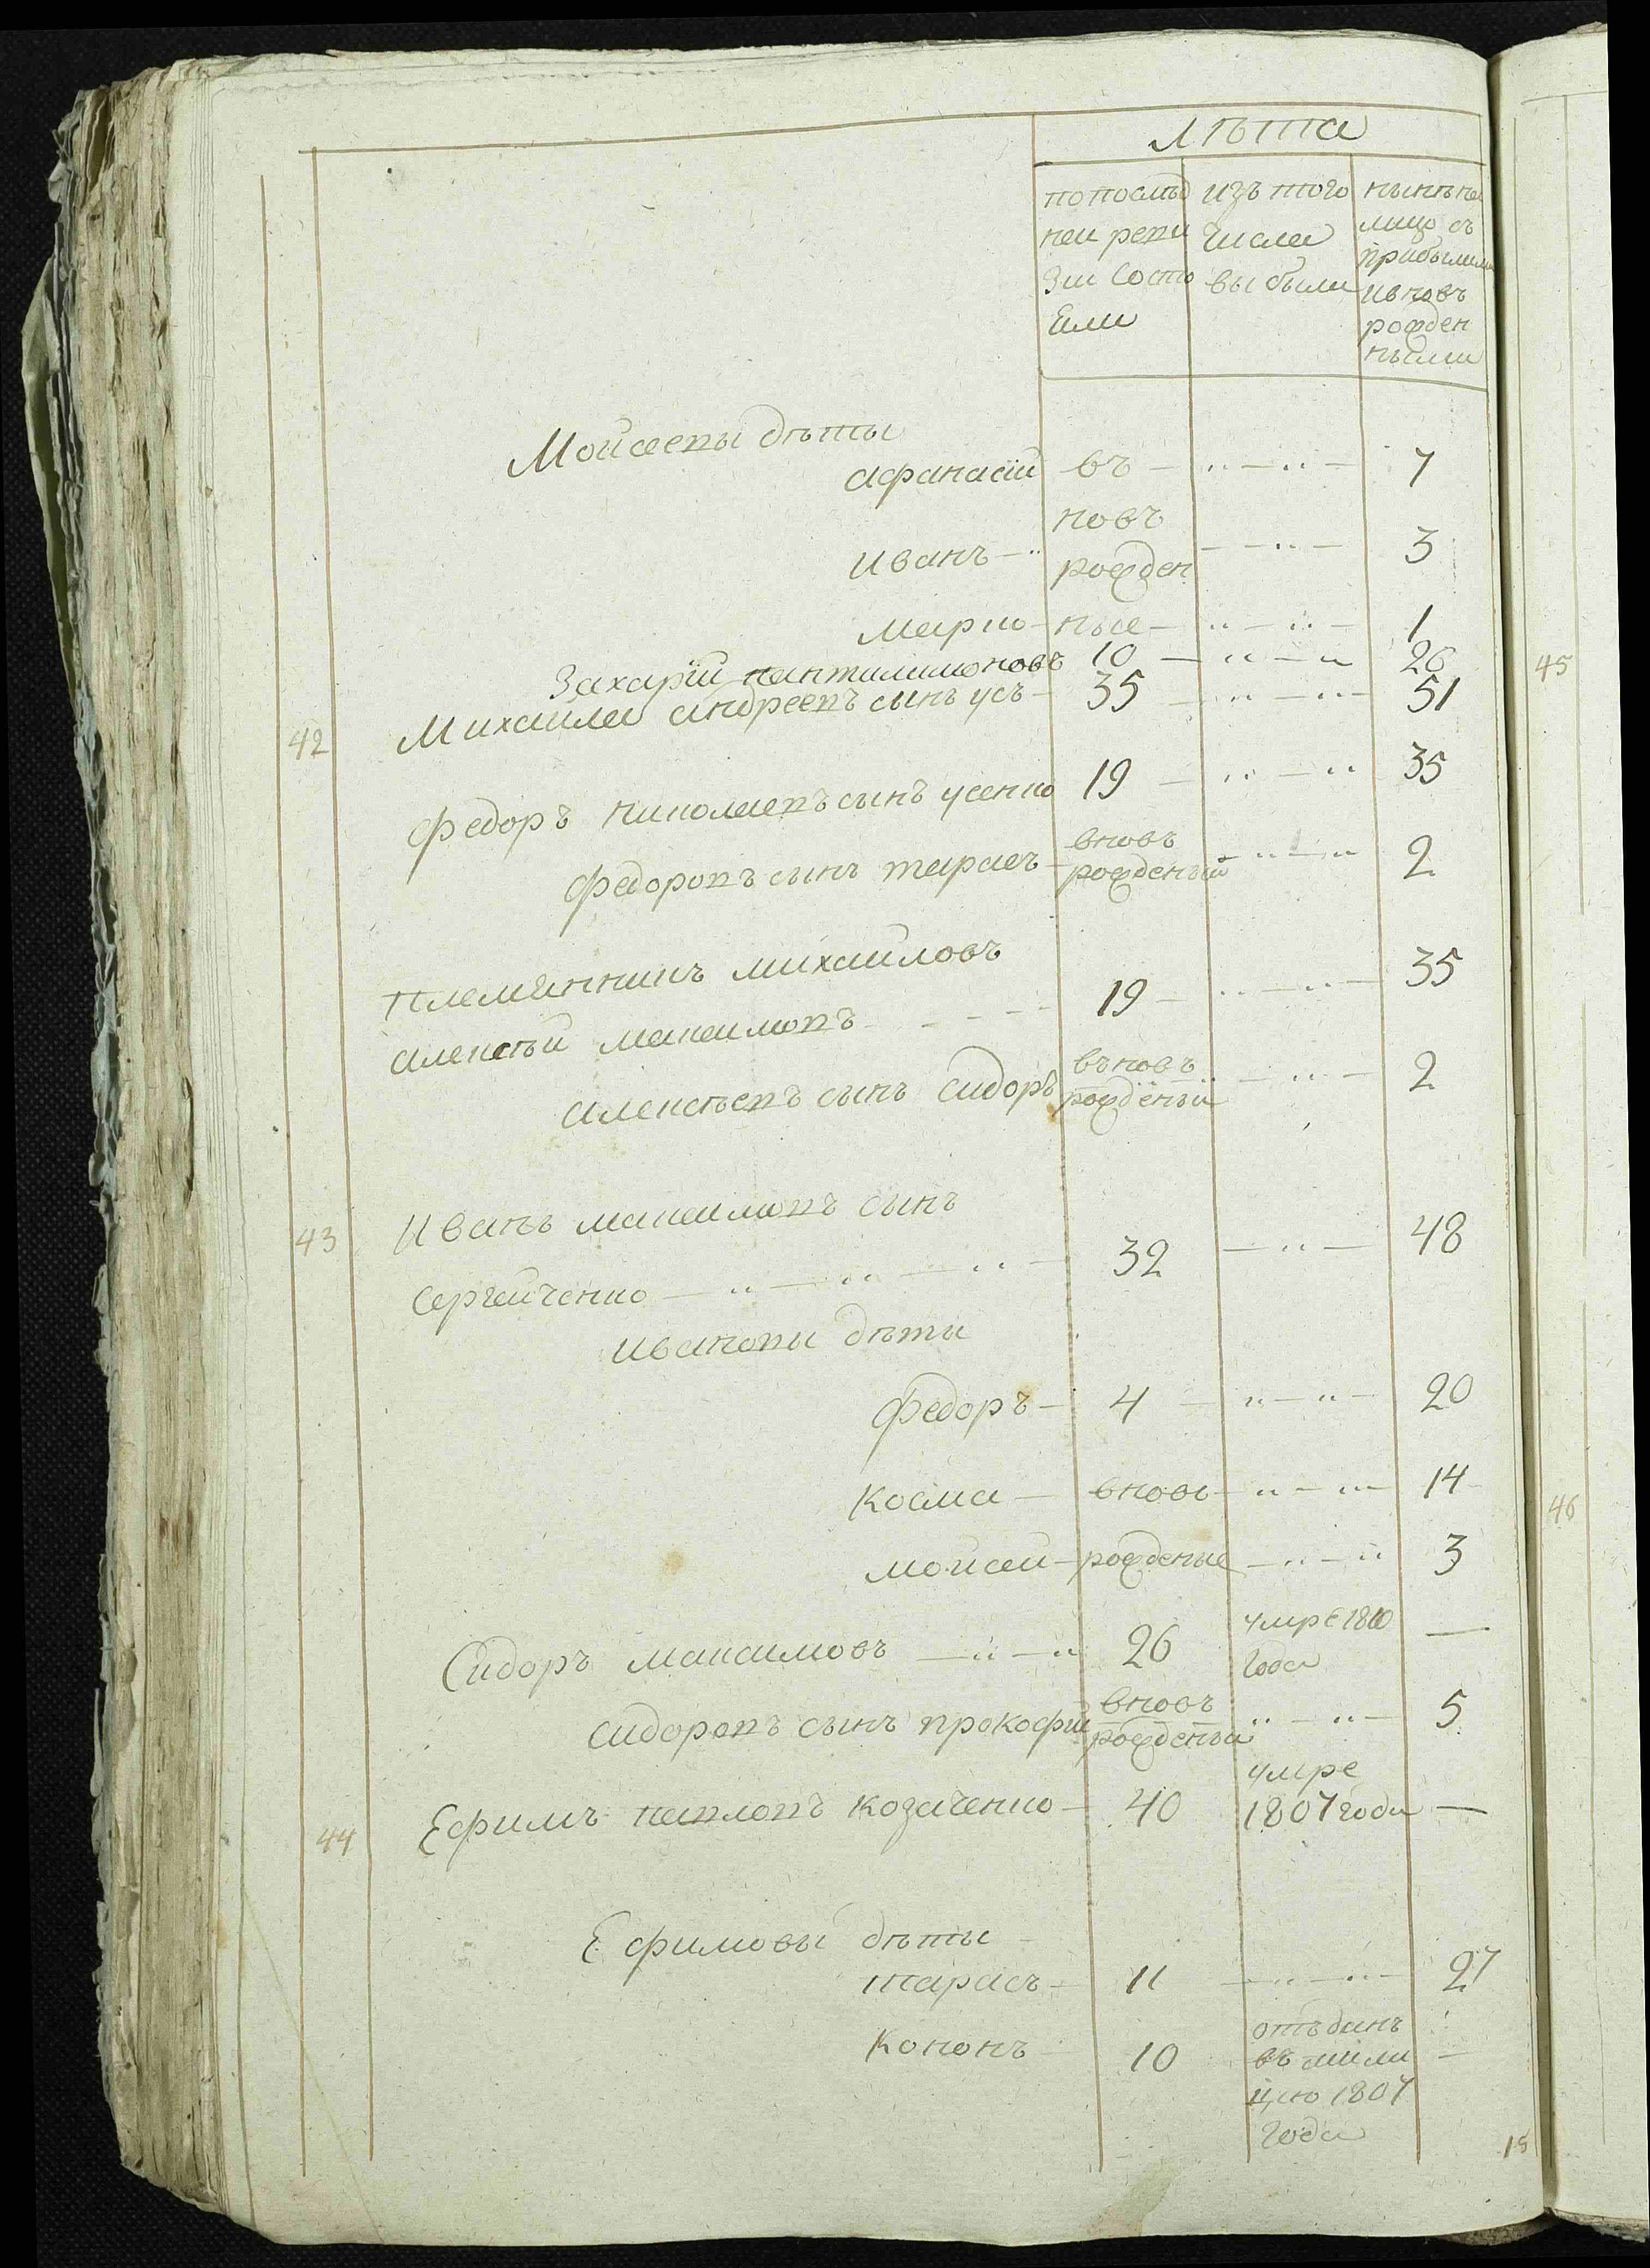 лѣта
попослѣд изъ того нынѣ на
ней реви числа лицо съ
зіи состо выбыли прибылыми
яли ивновь
рожден
ными
Мойсеевы дѣты
Афанасій въ — „ — „ — 7
Иванъ — „ новъ рожден — „ — 3
марко — ные — „ — „ — 1
Захарій пантилимоновъ 10 — „ — „ 26
42 Михайла андреевъ сынъ усъ — 35 — „ — „ — 51
Федоръ николаевъ сынъ усенко 19 — „ — „ 35
Федоровъ сынъ тарасъ — вновъ рожденый „ — „ 2
племянникъ михайловъ
алексѣй максимовъ — — — 19 — „ — „ — 35
алексѣевъ сынъ сидоръ въновъ рожденый — „ — 2
43 Иванъ максимовъ сынъ
сергейченко — „ — „ — „ — 32 — „ — 48
ивановы дѣты
Федоръ — 4 — „ — „ — 20
Косма — вновь — „ — „ — 14
мойсей — рожденые — „ — „ 3
Сидоръ максимовъ — „ — „ 26 умре 1810 года —
сидоровъ сынъ прокофій вновъ рожденый „ — „ — 5
44 Ефимъ павловъ козаченко — 40 умре 1807 года —
Ефимовы дѣты
тарасъ — 11 — „ — „ — 27
Кононъ 10 отъданъ —
въ мили
цію 1807
года
15
45
46